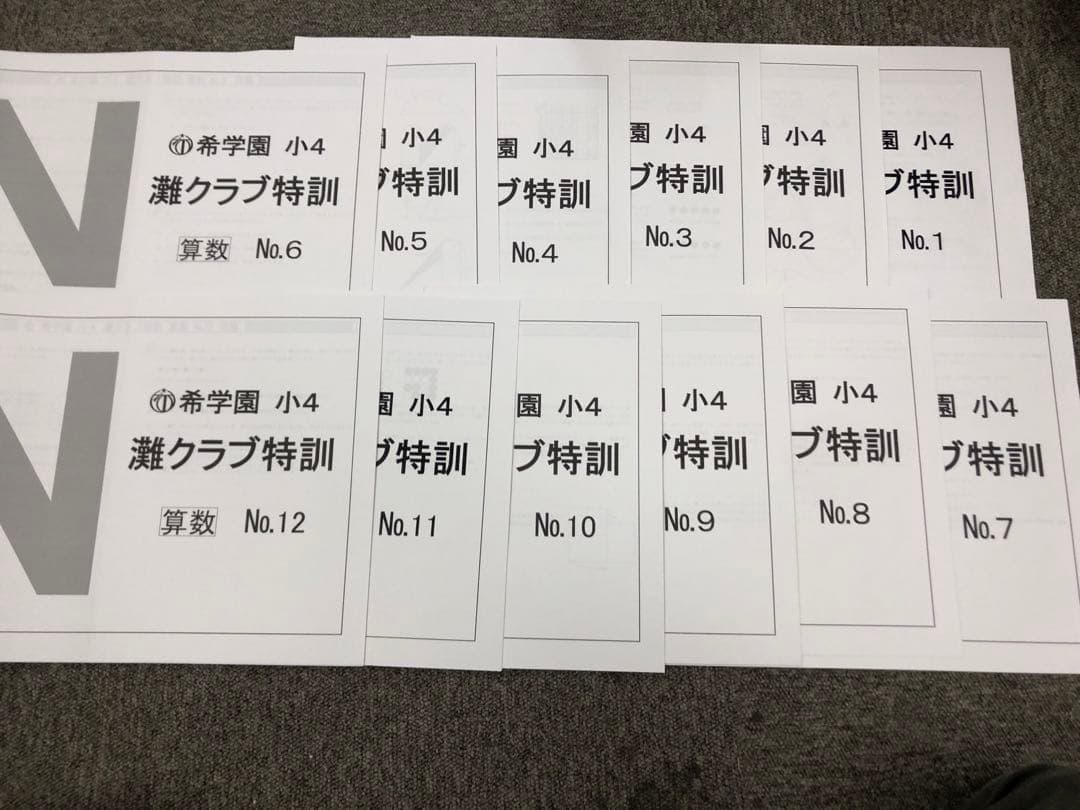 N
希学園 小4
灘クラブ特訓
算数 No.6
園 小4
ブ特訓
No.5
園 小4
ブ特訓
No.4
園 小4
ブ特訓
No.3
園 小4
ブ特訓
No.2
園 小4
ブ特訓
No.1
N
希学園 小4
灘クラブ特訓
算数 No.12
園 小4
ブ特訓
No.11
園 小4
ブ特訓
No.10
小4
ブ特訓
No.9
園 小4
ブ特訓
No.8
園 小4
ブ特訓
No.7